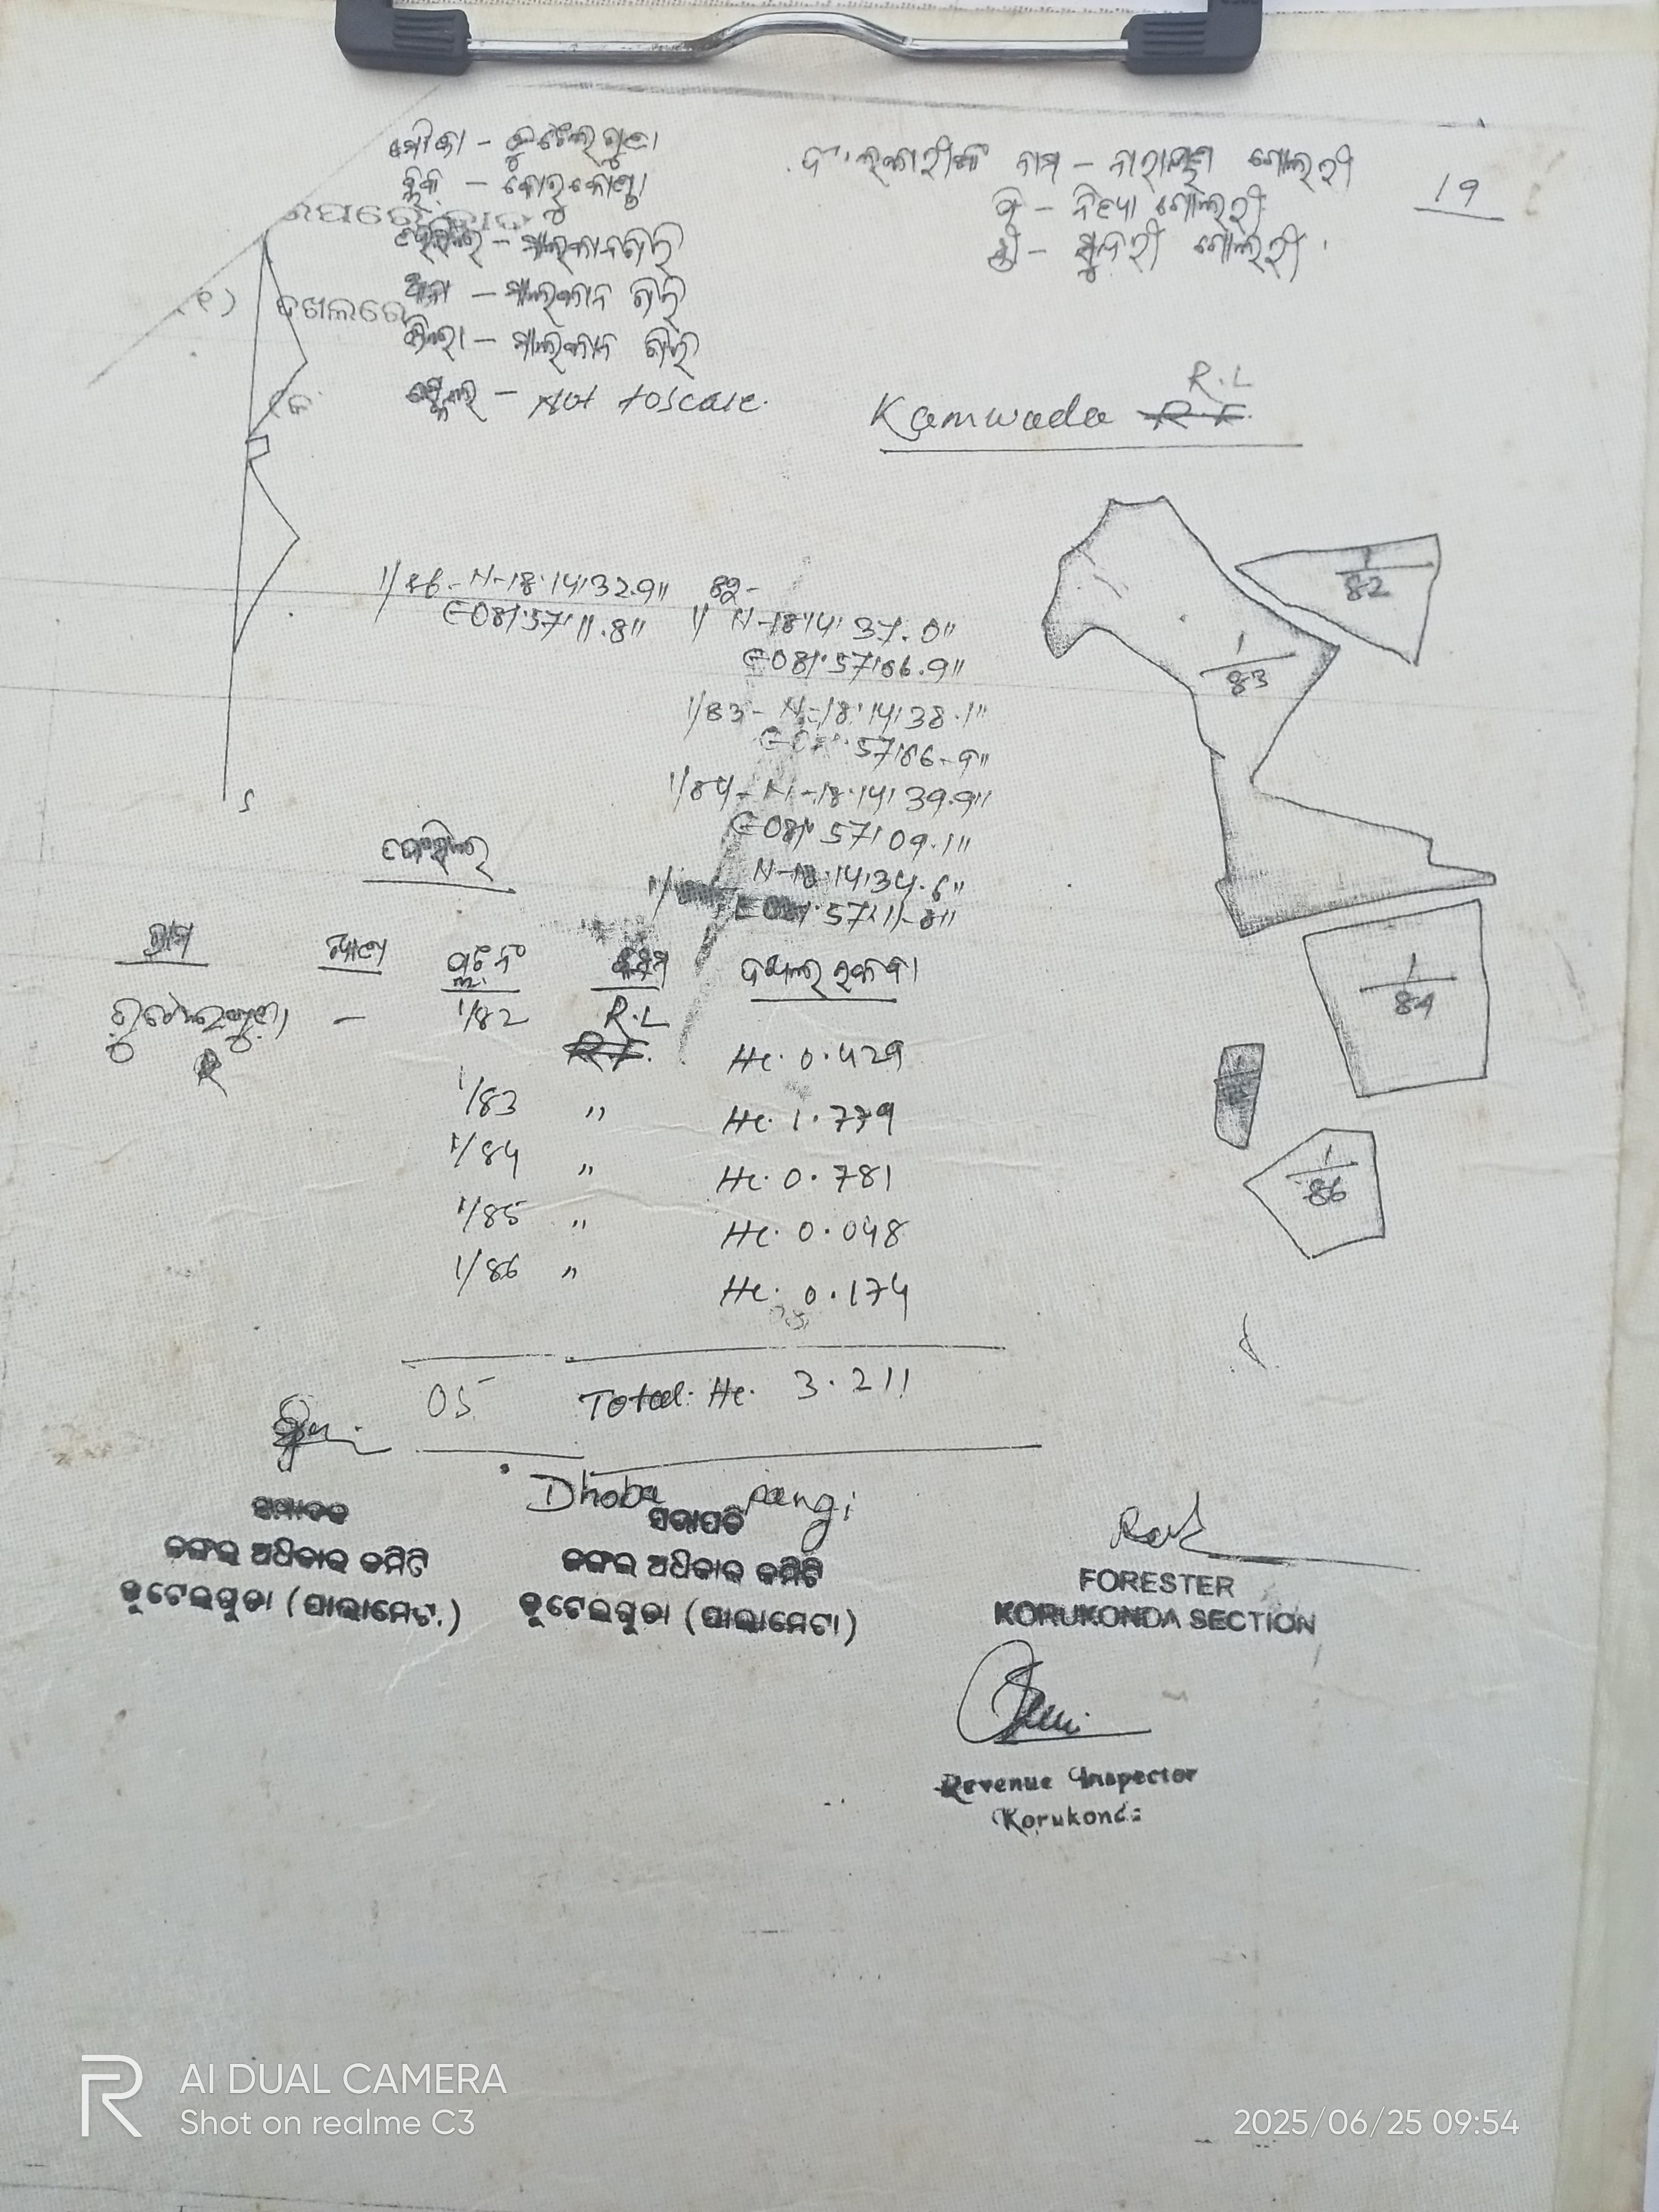 ମୌଜା - କୁଟେଲଗୁଡା
ବ୍ଲକ - କୋରୁକୋଣ୍ଡା
ତହସିଲ - ମାଲକାନଗିରି
ଥାନା - ମାଲକାନ ଗିରି
ଜିଲ୍ଲା - ମାଲକାନ ଗିରି
ସ୍କେଲ - Not toscale.
(୧) ଦଖଲରେ
(କ
ନାମ - ନାରାୟଣ ଗୋଲରୀ
ପି - ଗୋଲରୀ
ସ୍ତ୍ରୀ - ସୁନ୍ଦରୀ ଗୋଲରୀ
19
R.L
Kamwada R.F.
1/86 - N-18°14'32.9"
E081°57'11.8"
82-
1/ N-18°14'37.0"
E081°57'06.9"
1/83 - N-18°14'38.1"
E081°57'06.9"
1/84 - N-18°14'39.9"
E081°57'09.1"
N-18°14'34.6"
E081°57'11.8"
1/82
1/83
1/84
1/86
S
ଗ୍ରାମ ଖାତା ପ୍ଲଟ ନଂ କିସମ ଦଖଲ ରକବା
କୁଟେଲଗୁଡା - 1/82 R.L
R.F. He. 0.429
1/83 " He. 1.779
1/84 " He. 0.781
1/85 " He. 0.048
1/86 " He. 0.174
05 Total: He. 3.211
Dhoba pangi
ସମ୍ପାଦକ
ଜଙ୍ଗଲ ଅଧିକାର କମିଟି
କୁଟେଲଗୁଡା (ପାଲାମେଟା)
ସଭାପତି
ଜଙ୍ଗଲ ଅଧିକାର କମିଟି
କୁଟେଲଗୁଡା (ପାଲାମେଟା)
FORESTER
KORUKONDA SECTION
Revenue Inspector
Korukonda
AI DUAL CAMERA
Shot on realme C3
2025/06/25 09:54